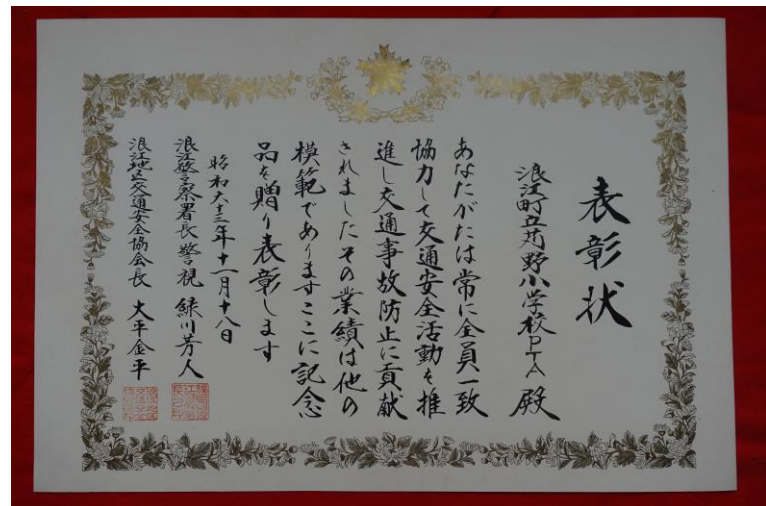 表彰状
浪江町立苅野小学校PTA 殿
あなたがたは常に全員一致
協力して交通安全活動を推
進し交通事故防止に貢献
されましたその業績は他の
模範でありますここに記念
品を贈り表彰します
昭和六十三年十一月十八日
浪江警察署長 警視 緑川芳人
浪江地区交通安全協会長 大平金平